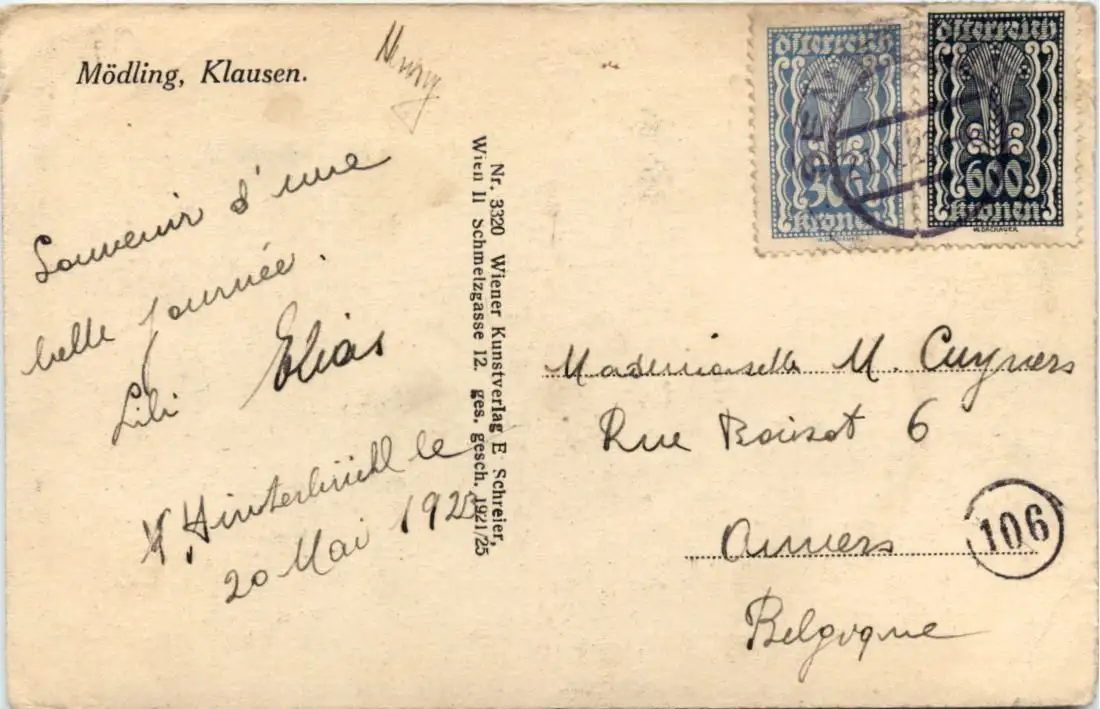 Mödling, Klausen.
Souvenir d'une
belle journée.
Lili Elias
Hinterbrühl le
20 Mai 1925
Nr. 3320 Wiener Kunstverlag E Schreier,
Wien II Schmelzgasse 12. ges. gesch. 1921/25
österreich
300
kronen
W.DACHAUER.
österreich
600
kronen
W.DACHAUER.
Mademoiselle M. Cuyvers
Rue 6
Anvers
106
Belgique